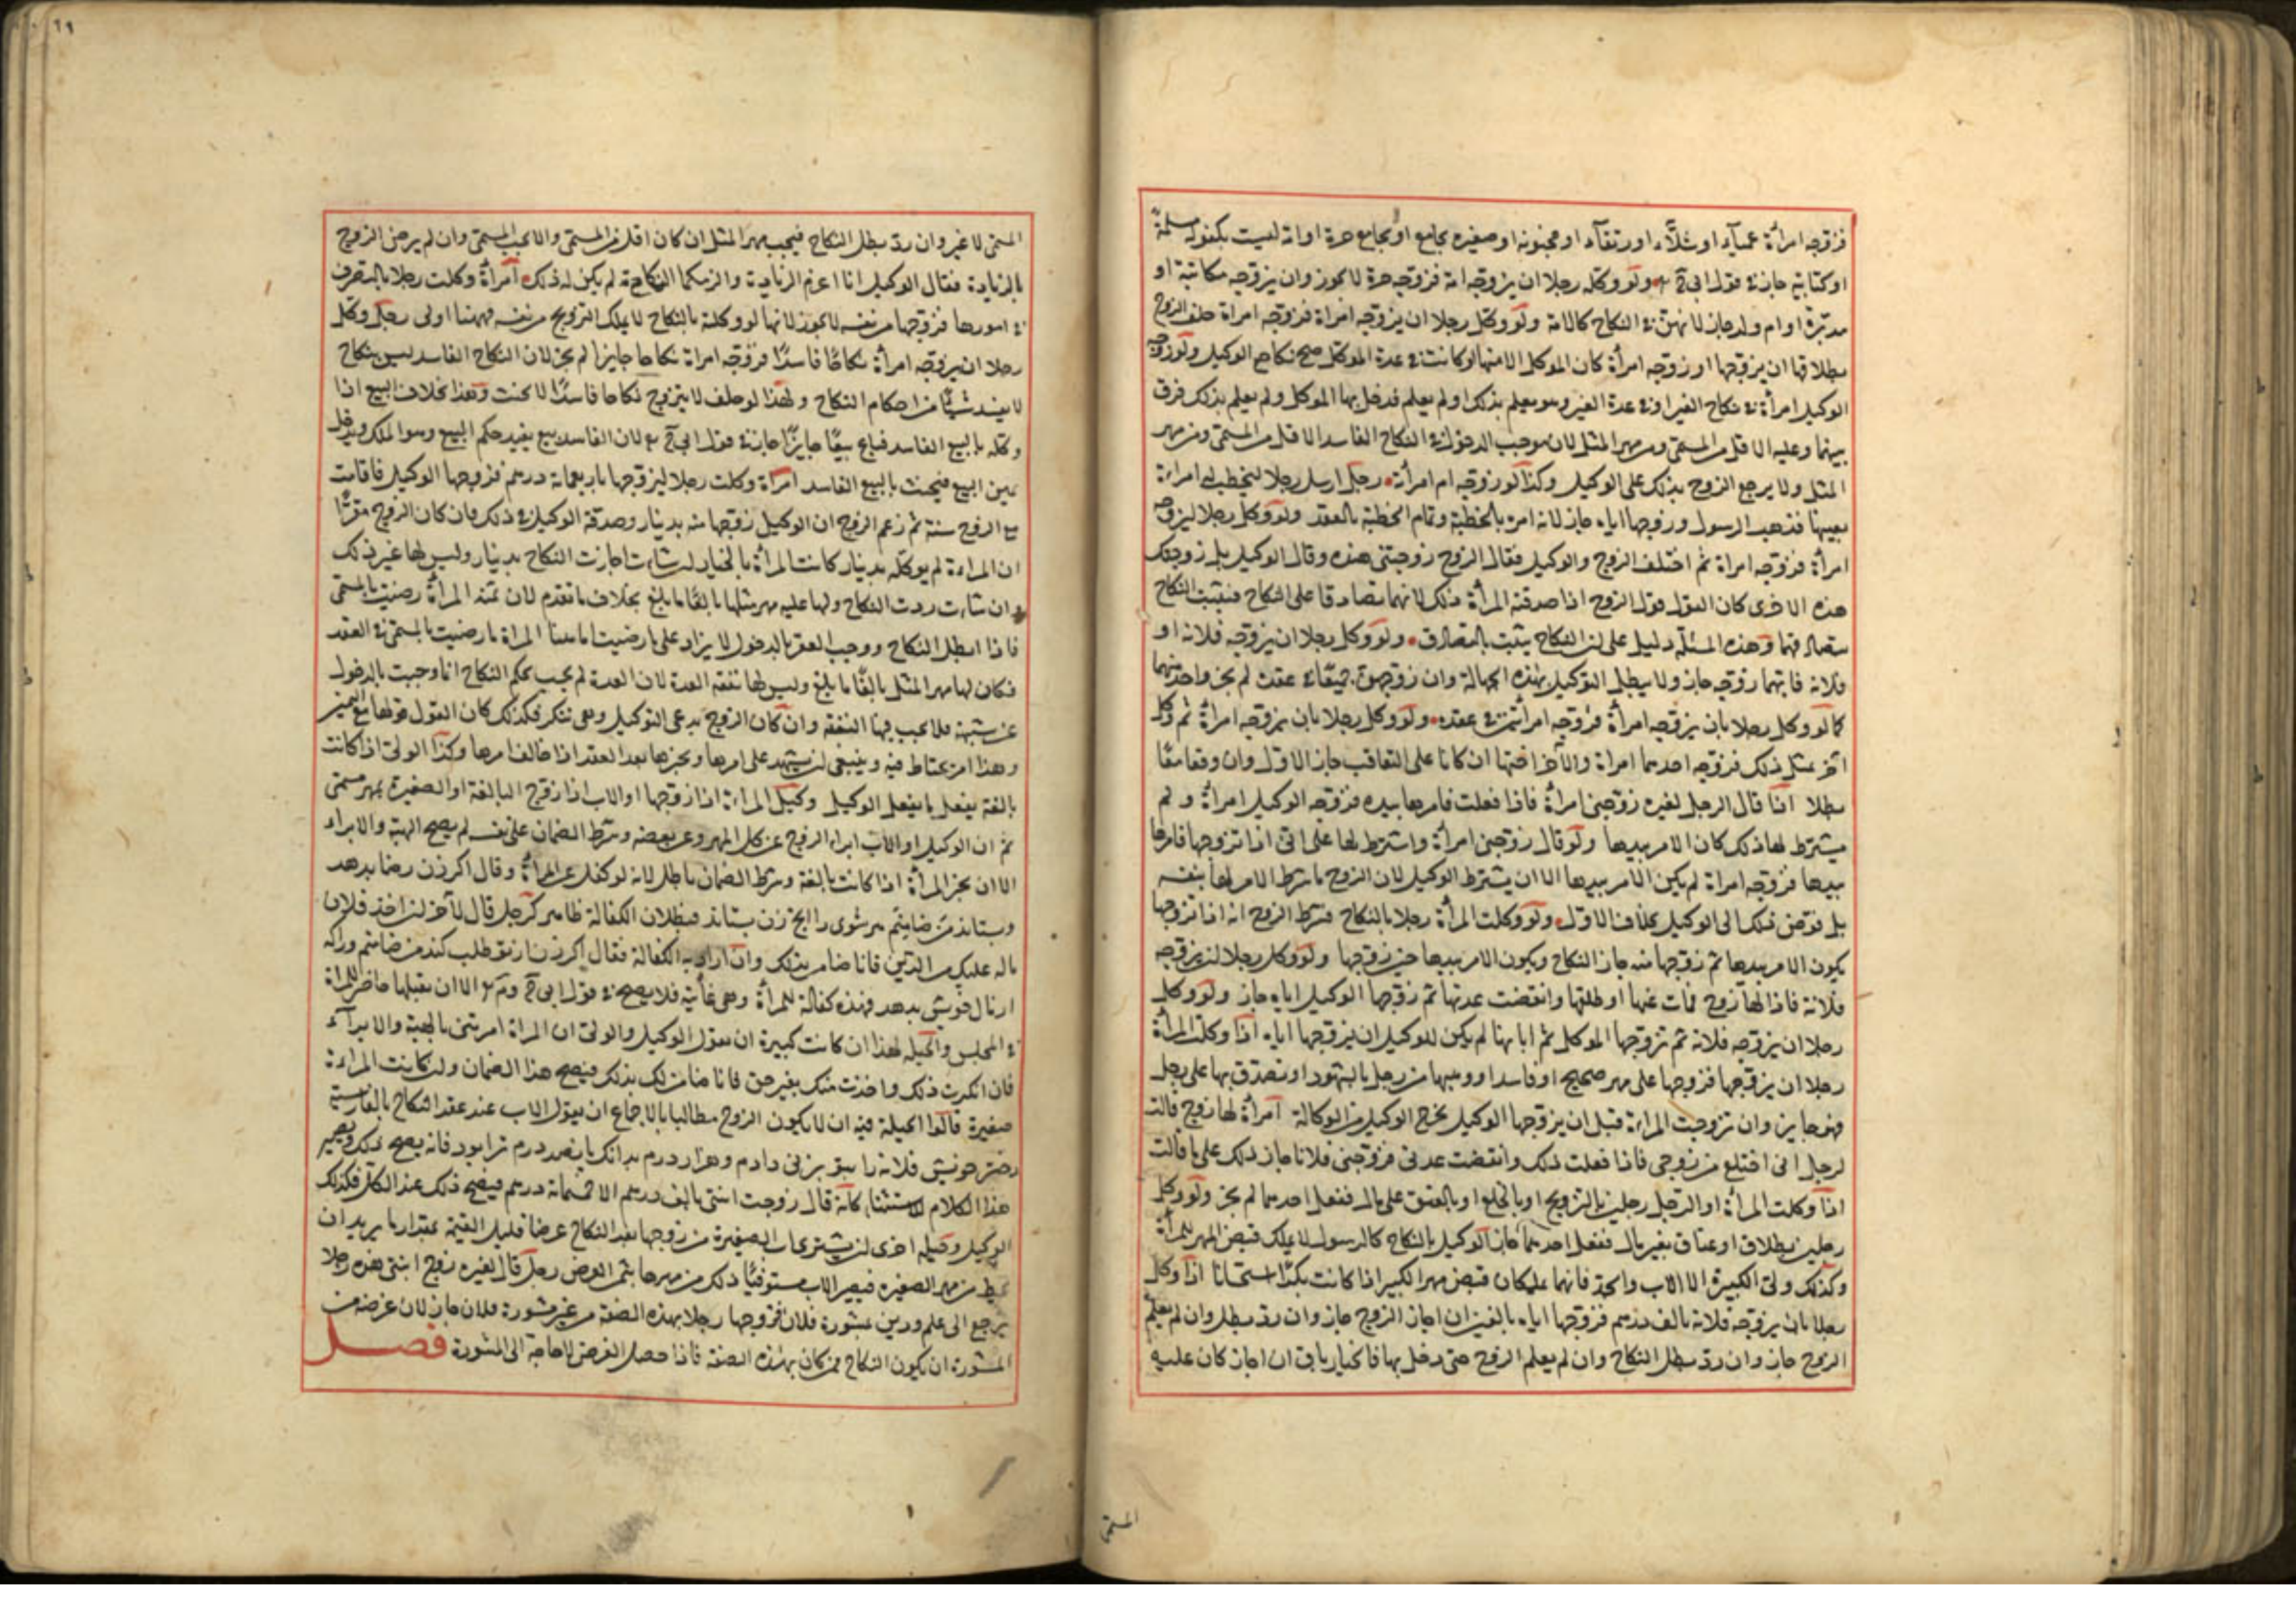 فزوجه امرأة عمياء او شلاء او رتقاء او مجنونة او صغيرة يجامع او لا يجامع حرة او امة ليست بكفو له مسلمة
او كتابية جاز في قول ابي ح ولو وكله رجلا ان يزوجه امة فزوجه حرة لا يجوز وان يزوجه مكاتبة او
مدبرة او ام ولد جاز لانهن في النكاح كالامة ولو وكل رجلا ان يزوجه امرأة فزوجه امراة حلف الزوج
بطلاقها ان يزوجها او زوجه امرأة كان الموكل الا منها او كانت في عدة الموكل صح نكاح الوكيل ولو زوجه
الوكيل امرأة في نكاح الغير او في عدة الغير وهو يعلم بذلك او لم يعلم فدخل بها الموكل ولم يعلم بذلك فرق
بينهما وعليه الاقل من المسمى ومن مهر المثل لان موجب الدخول في النكاح الفاسد الاقل من المسمى ومن مهر
المثل ولا يرجع الزوج بذلك على الوكيل وكذا لو زوجه ام امرأته رجل ارسل رجلا ليخطب له امراءة
بعينها فذهب الرسول وزوجها اياه جاز لانه امره بالخطبة وتمام الخطبة بالعقد ولو وكل رجلا ليزوجه
امرأة فزوجه امراة ثم اختلف الزوج والوكيل فقال الزوج زوجتني هذه وقال الوكيل بل زوجتك
هذه الاخرى كان القول قول الزوج اذا صدقته المرأة في ذلك لانهما تصادقا على النكاح فيثبت النكاح
بتصادقهما وهذه المسئلة دليل على ان النكاح يثبت بالتصادق ولو وكل رجلا ان يزوجه فلانة او
فلانة فايتهما زوجه جاز ولا يبطل التوكيل بهذه الجهالة وان زوجهن جميعا في عقدة لم يجز واحدة منهما
كما لو وكل رجلا بان يزوجه امرأة فزوجه امرأتين في عقدة ولو وكل رجلا بان يزوجه امرأة ثم وكل
آخر بمثل ذلك فزوجه احدهما امراة والآخر اختها ان كانا على التعاقب جاز الاول وان وقعا معا
بطلا اذا قال الرجل لغيره زوجني امرأة فاذا فعلت فامرها بيده فزوجه الوكيل امرأة ولم
يشترط لها ذلك كان الامر بيدها ولو قال زوجني امرأة واشترط لها على اني اذا تزوجها فامرها
بيدها فزوجه امراة لم يكن الامر بيدها الا ان يشترط الوكيل لان الزوج ما شرط الامر لها بنفسه
بل فوض ذلك الى الوكيل بخلاف الاول ولو وكلت المرأة رجلا بالنكاح فشرط الزوج انه اذا تزوجها
يكون الامر بيدها ثم زوجها منه جاز النكاح ويكون الامر بيدها حين زوجها ولو وكل رجلا ان يزوجه
فلانة فاذا لها زوج فمات عنها او طلقها وانقضت عدتها ثم زوجها الوكيل اياه جاز ولو وكل
رجلا ان يزوجه فلانة ثم تزوجها الموكل ثم ابانها لم يكن للوكيل ان يزوجها اياه اذا وكلت المرأة
رجلا ان يزوجها فزوجها على مهر صحيح او فاسد او وهبها من رجل بالشهود او تصدق بها على رجل
فهو جايز وان تزوجت المراءة قبل ان يزوجها الوكيل يخرج الوكيل من الوكالة امرأة لها زوج قالت
لرجل اني اختلع من زوجي فاذا فعلت ذلك وانقضت عدتي فزوجني فلانا جاز ذلك على ما قالت
اذا وكلت المرأة او الرجل رجلين بالتزويج او بالخلع او بالعتق على مال ففعل احدهما لم يجز ولو وكل
رجلين بطلاق او عتاق بغير مال ففعل احدهما جاز الوكيل بالنكاح كالرسول لا يملك قبض المهر للمرأة
وكذلك ولي الكبيرة الا الاب والجد فانهما يملكان قبض مهر الكبير اذا كانت بكرا استحسانا اذا وكل
رجلا بان يزوجه فلانة بالف درهم فزوجها اياه بالفين ان اجاز الزوج جاز وان رد بطل وان لم يعلم
الزوج جاز وان رد بطل النكاح وان لم يعلم الزوج حتى دخل بها فالخيار باق ان اجاز كان عليه
المسمى
المسمى لا غير وان رد بطل النكاح فيجب مهر المثل ان كان اقل من المسمى والا يجب المسمى وان لم يرض الزوج
بالزيادة فقال الوكيل انا اغرم الزيادة والزمكما النكاح لم يكن له ذلك امرأة وكلت رجلا بالتصرف
في امورها فزوجها من نفسه لا يجوز لانها لو وكلته بالنكاح لا يملك التزويج من نفسه فههنا اولى رجل وكل
رجلا ان يزوجه امرأة نكاحا فاسدا فزوجه امراة نكاحا جايزا لم يجز لان النكاح الفاسد ليس بنكاح
لا يفيد شيئا من احكام النكاح ولهذا لو حلف لا يتزوج نكاحا فاسدا لا يحنث وهذا بخلاف البيع اذا
وكله بالبيع الفاسد فباع بيعا جايزا جاز في قول ابي ح لان الفاسد بيع يفيد حكم البيع وهو الملك ويدخل
يمين البيع فيحنث بالبيع الفاسد امرأة وكلت رجلا ليزوجها باربعمائة درهم فزوجها الوكيل فاقامت
مع الزوج سنة ثم زعم الزوج ان الوكيل زوجها منه بدينار وصدقه الوكيل في ذلك فان كان الزوج مقرا
ان المراءة لم يوكله بدينار كانت المرأة بالخيار ان شاءت اجازت النكاح بدينار وليس لها غير ذلك
وان شاءت ردت النكاح ولها عليه مهر مثلها بالغا ما بلغ بخلاف ما تقدم لان ثمة المرأة رضيت بالمسمى
فاذا ابطل النكاح ووجب العقر بالدخول لا يزاد على ما رضيت اما هنا المراة ما رضيت بالمسمى في العقد
فكان لها مهر المثل بالغا ما بلغ وليس لها نفقة العدة لان العدة لم يجب بحكم النكاح انما وجبت بالدخول
عن شبهة فلا يجب فيها النفقة وان كان الزوج يدعي التوكيل وهي تنكر فكذلك كان القول قولها مع اليمين
وهذا امر يحتاط فيه وينبغي ان يشهد على امرها ويخبرها بعد العقد اذا خالف امرها وكذا الولي اذا كانت
بالغة يفعل ما يفعل الوكيل وكيل المراءة اذا زوجها او الاب اذا زوج البالغة او الصغيرة بمهر مسمى
ثم ان الوكيل او الاب ابراء الزوج عن كل المهر وعن بعضه وشرط الضمان على نفسه لم يصح الهبة والابراء
الا ان يجيز المرأة اذا كانت بالغة وشرط الضمان باطل لانه لو كفل عن المرأة وقال اكر زن رضا بدهد
وبستاند من ضامنم هر شوى را انج زن بستاند فبطلان الكفالة ظاهر كرجل قال لآخر ان اخذ فلان
ماله عليك من الدين فانا ضامن بذلك وان اراد به الكفالة فقال اكر زن از تو طلب كند من ضامنم وراكه
از مال خويش بدهد فهذه كفالة للمرأة وهي غائبة فلا يصح في قول ابي ح وم الا ان يقبلها حاضر للمراة
في المجلس والحيلة لهذا ان كانت كبيرة ان يقول الوكيل والولي ان المراة امرتني بالهبة والابراء
فان انكرت ذلك واخذت منك بغير حق فانا ضامن لك بذلك فيصح هذا الضمان وان كانت المراءة
صغيرة قالوا الحيلة فيه ان لا يكون الزوج مطالبا بالاجماع ان يقول الاب عند عقد النكاح بالفارسية
دختر خويش فلانه را بتو بزنى دادم وهزار درم بدانك پانصد درم ترا بود فانه يصح ذلك ويصير
هذا الكلام للاستثناء كانه قال زوجت ابنتي بالف درهم الا خمسمائة درهم فيصح ذلك عند الكل فكذلك
الوكيل وحيلة اخرى ان يشترى اب الصغيرة من زوجها بعد النكاح عرضا قليل القيمة بمقدار ما يريد ان
يحط من مهر الصغيرة فيصير الاب مستوفيا ذلك من مهرها بثمن العرض رجل قال لغيره زوج ابنتي هذه رجلا
يرجع الى علم ودين بمشورة فلان فزوجها رجلا بهذه الصفة من غير مشورة فلان جاز لان غرضه من
المشورة ان يكون النكاح ممن كان بهذه الصفة فاذا حصل الغرض لا حاجة الى المشورة فصل